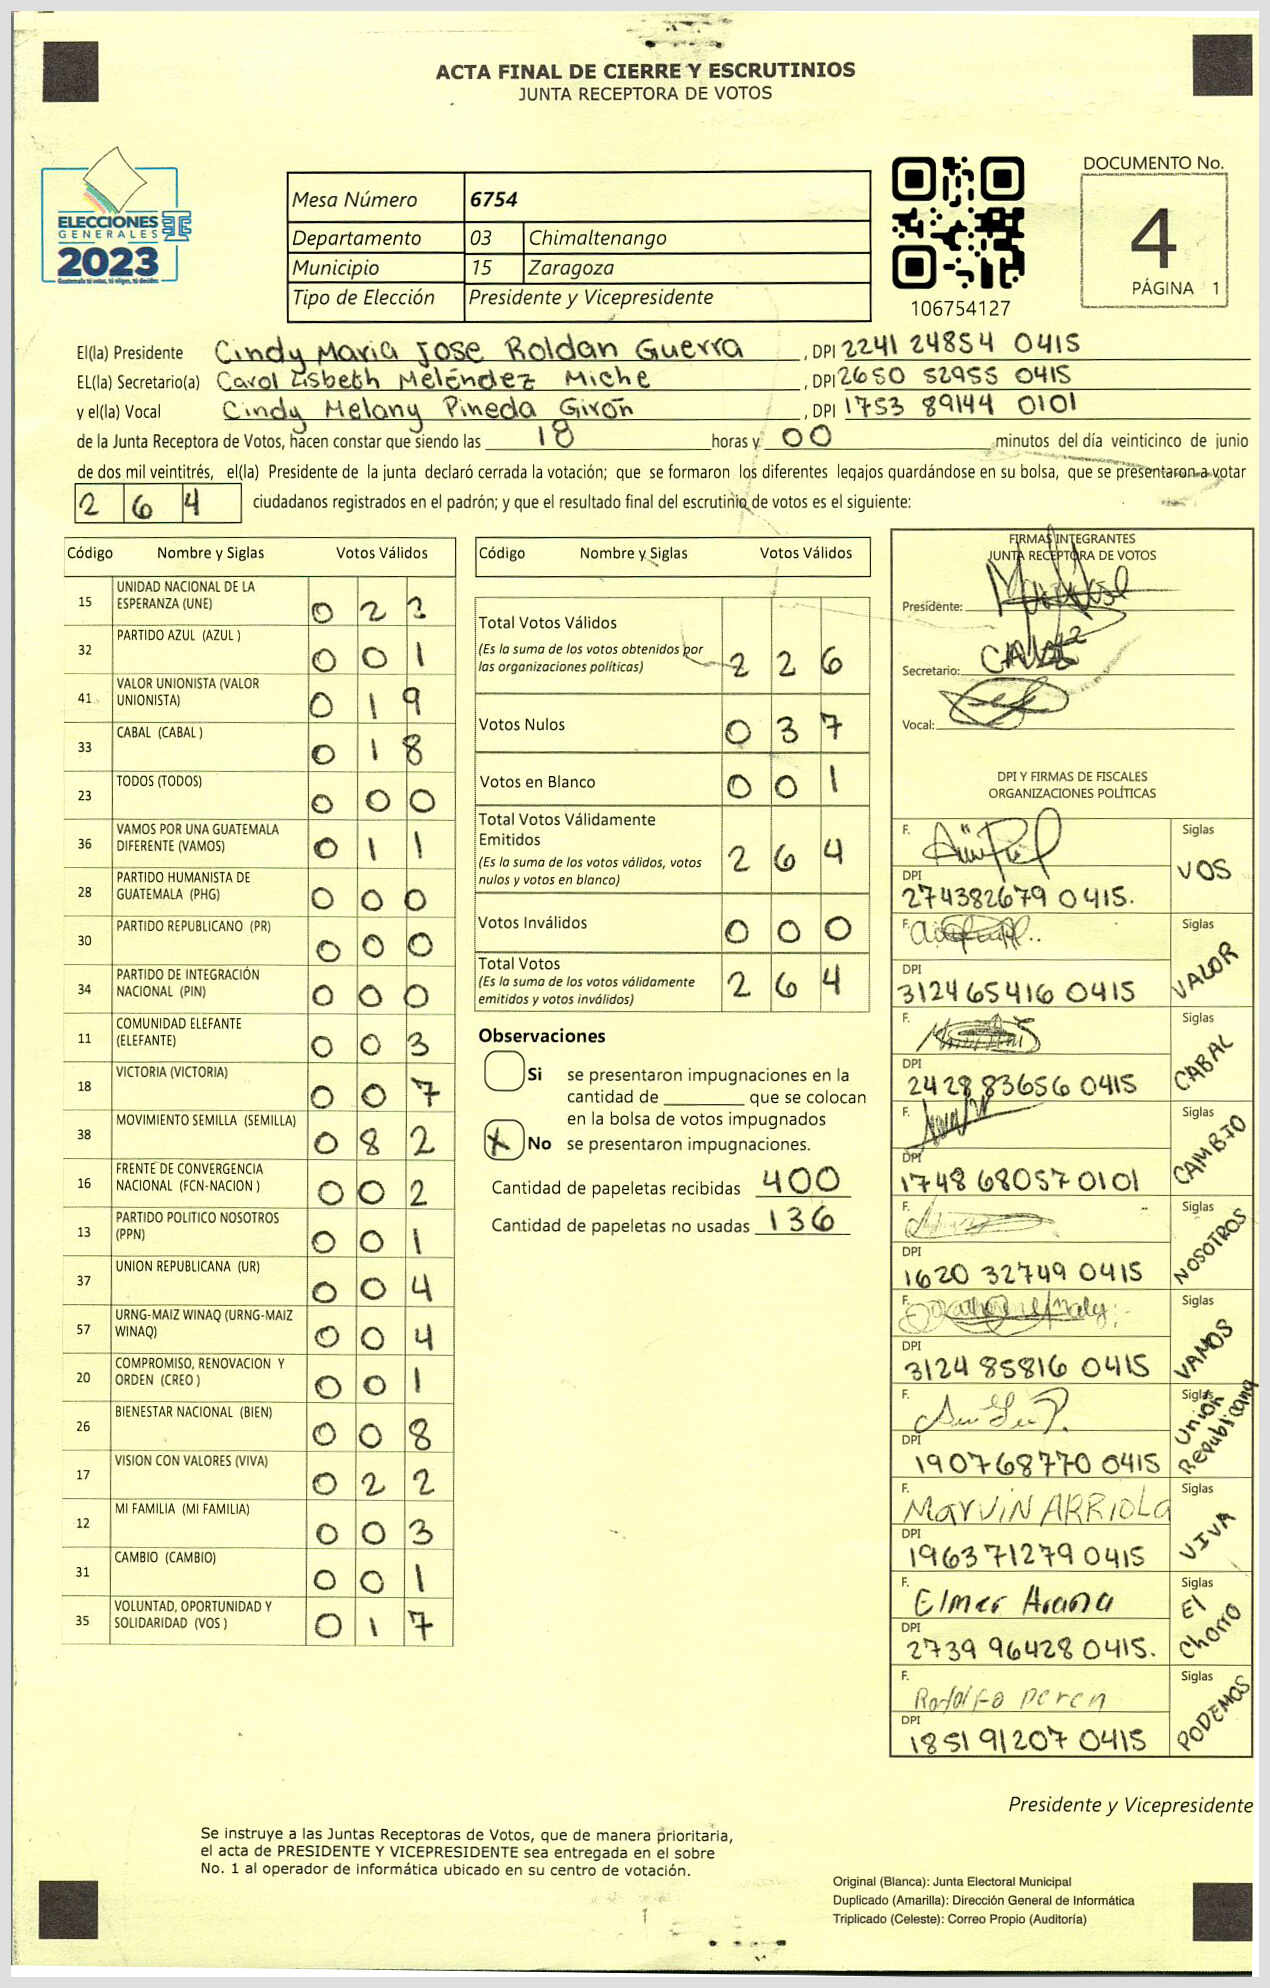 ACTA FINAL DE CIERRE Y ESCRUTINIOS
JUNTA RECEPTORA DE VOTOS
ELECCIONES
GENERALES
2023
Mesa Número 6754
Departamento 03 Chimaltenango
Municipio 15 Zaragoza
Tipo de Elección Presidente y Vicepresidente
106754127
DOCUMENTO No.
4
PÁGINA 1
El(la) Presidente Cindy Maria Jose Roldan Guerra, DPI 2241 24854 0415
EL(la) Secretario(a) Carol Lisbeth Meléndez Miche, DPI 2650 52955 0415
y el(la) Vocal Cindy Melany Pineda Girón, DPI 1753 89144 0101
de la Junta Receptora de Votos, hacen constar que siendo las 18 horas y 00 minutos del día veinticinco de junio
de dos mil veintitrés, el(la) Presidente de la junta declaró cerrada la votación; que se formaron los diferentes legajos guardándose en su bolsa, que se presentaron a votar
264 ciudadanos registrados en el padrón; y que el resultado final del escrutinio de votos es el siguiente:
Código Nombre y Siglas Votos Válidos
15 UNIDAD NACIONAL DE LA ESPERANZA (UNE) 022
32 PARTIDO AZUL (AZUL ) 001
41 VALOR UNIONISTA (VALOR UNIONISTA) 019
33 CABAL (CABAL ) 018
23 TODOS (TODOS) 000
36 VAMOS POR UNA GUATEMALA DIFERENTE (VAMOS) 011
28 PARTIDO HUMANISTA DE GUATEMALA (PHG) 000
30 PARTIDO REPUBLICANO (PR) 000
34 PARTIDO DE INTEGRACIÓN NACIONAL (PIN) 000
11 COMUNIDAD ELEFANTE (ELEFANTE) 003
18 VICTORIA (VICTORIA) 007
38 MOVIMIENTO SEMILLA (SEMILLA) 082
16 FRENTE DE CONVERGENCIA NACIONAL (FCN-NACION ) 002
13 PARTIDO POLITICO NOSOTROS (PPN) 001
37 UNION REPUBLICANA (UR) 004
57 URNG-MAIZ WINAQ (URNG-MAIZ WINAQ) 004
20 COMPROMISO, RENOVACION Y ORDEN (CREO ) 001
26 BIENESTAR NACIONAL (BIEN) 008
17 VISION CON VALORES (VIVA) 022
12 MI FAMILIA (MI FAMILIA) 003
31 CAMBIO (CAMBIO) 001
35 VOLUNTAD, OPORTUNIDAD Y SOLIDARIDAD (VOS ) 017
Código Nombre y Siglas Votos Válidos
Total Votos Válidos 226
(Es la suma de los votos obtenidos por
las organizaciones políticas)
Votos Nulos 037
Votos en Blanco 001
Total Votos Válidamente
Emitidos 264
(Es la suma de los votos válidos, votos
nulos y votos en blanco)
Votos Inválidos 000
Total Votos 264
(Es la suma de los votos válidamente
emitidos y votos inválidos)
Observaciones
Si se presentaron impugnaciones en la
cantidad de ________ que se colocan
en la bolsa de votos impugnados
X No se presentaron impugnaciones.
Cantidad de papeletas recibidas 400
Cantidad de papeletas no usadas 136
FIRMAS INTEGRANTES
JUNTA RECEPTORA DE VOTOS
Presidente:
Secretario:
Vocal:
DPI Y FIRMAS DE FISCALES
ORGANIZACIONES POLÍTICAS
F. Siglas VOS
DPI 274382679 0415.
F. Siglas VALOR
DPI 3124 65416 0415
F. Siglas CABAL
DPI 2428 83656 0415
F. Siglas CAMBIO
DPI 1748 68057 0101
F. Siglas NOSOTROS
DPI 1620 32749 0415
F. Siglas VAMOS
DPI 3124 85816 0415
F. Siglas Unión Republicana
DPI 190768770 0415
F. Marvin ARRiOLA Siglas VIVA
DPI 1963 71279 0415
F. Elmer Arana Siglas El Chorro
DPI 2739 96428 0415.
F. Rodolfo peren Siglas PODEMOS
DPI 1851 91207 0415
Presidente y Vicepresidente
Se instruye a las Juntas Receptoras de Votos, que de manera prioritaria,
el acta de PRESIDENTE Y VICEPRESIDENTE sea entregada en el sobre
No. 1 al operador de informática ubicado en su centro de votación.
Original (Blanca): Junta Electoral Municipal
Duplicado (Amarilla): Dirección General de Informática
Triplicado (Celeste): Correo Propio (Auditoría)